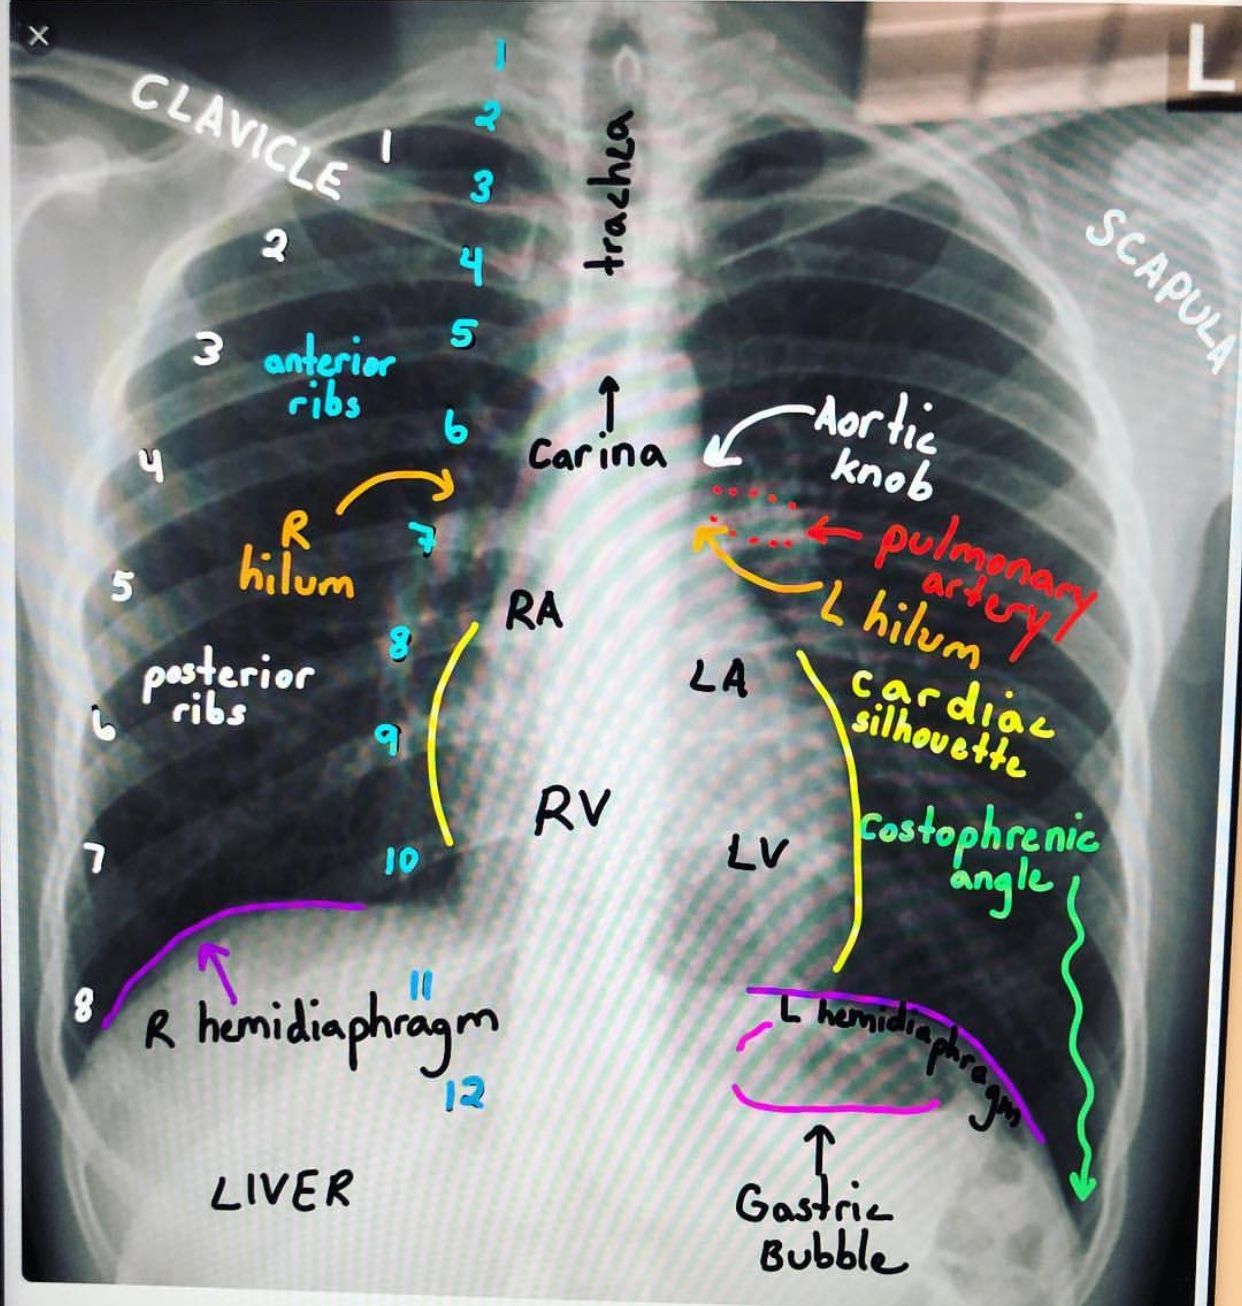 ×
L
CLAVICLE
1
2
3
4
5
6
7
8
1
2
3
4
5
6
7
8
9
10
11
12
trachea
SCAPULA
anterior
ribs
Carina
Aortic
knob
R
hilum
pulmonary
artery
L hilum
RA
LA
posterior
ribs
cardiac
silhouette
RV
LV
costophrenic
angle
R hemidiaphragm
L hemidiaphragm
LIVER
Gastric
Bubble